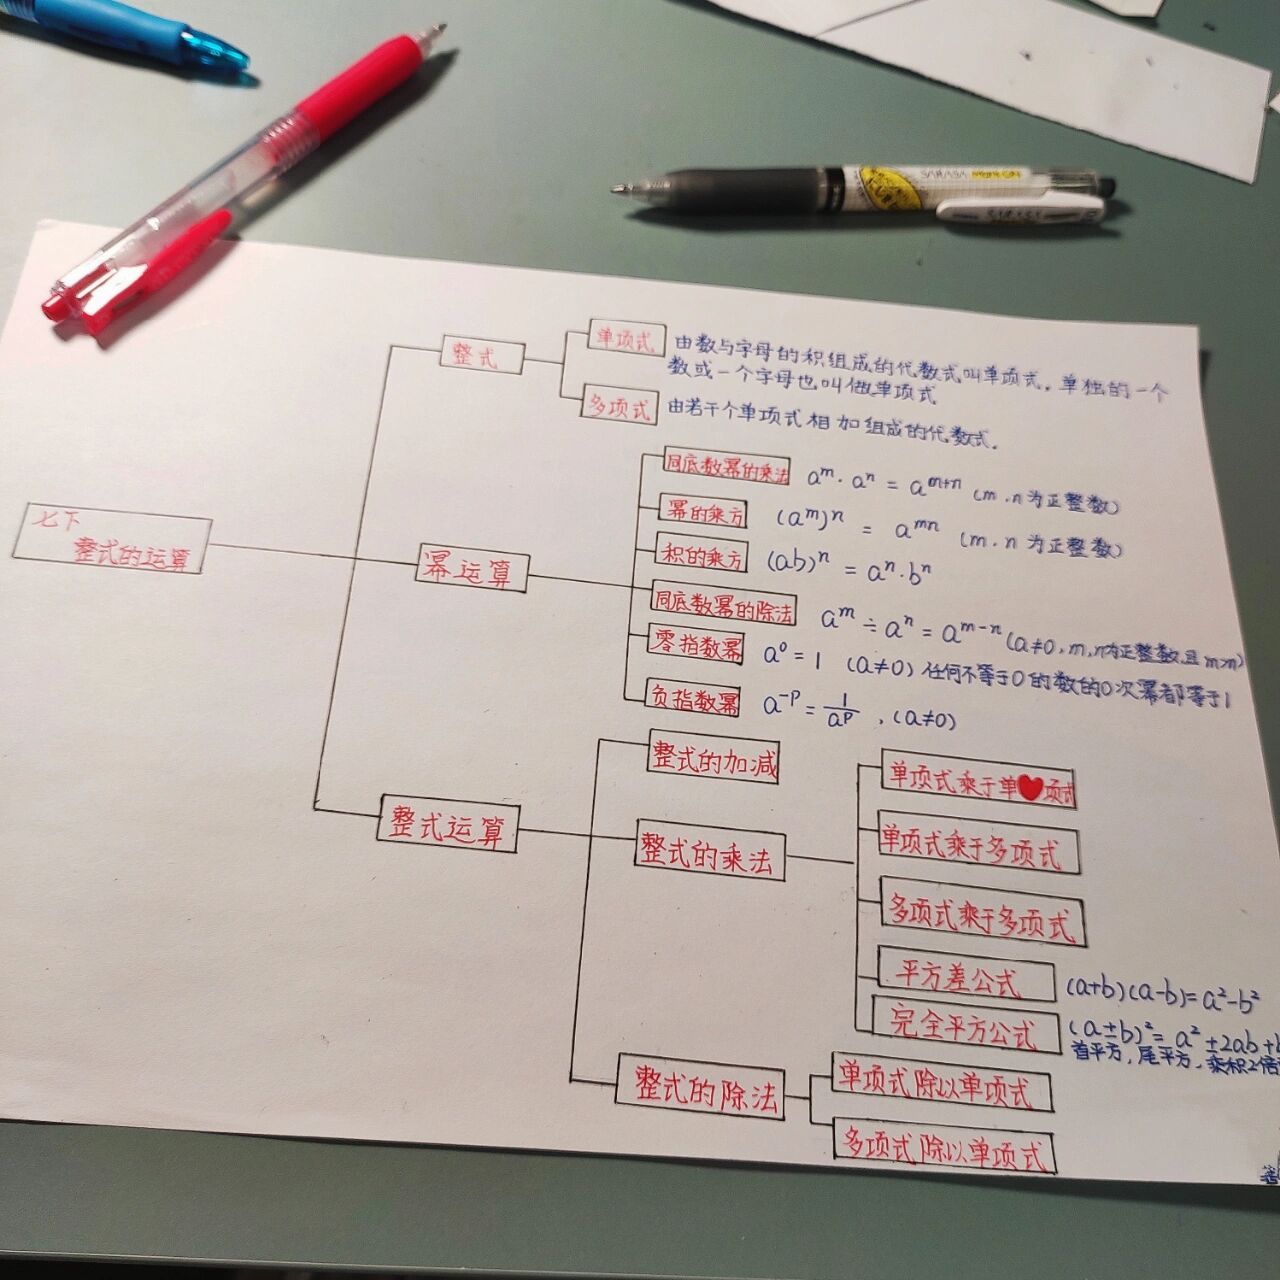 SARASA MARK ON
SARASA
整式
单项式
由数与字母的积组成的代数式叫单项式,单独的一个
数或一个字母也叫做单项式
多项式
由若干个单项式相加组成的代数式.
七下
整式的运算
幂运算
同底数幂的乘法
aᵐ·aⁿ=aᵐ⁺ⁿ (m.n为正整数)
幂的乘方
(aᵐ)ⁿ = aᵐⁿ (m.n为正整数)
积的乘方
(ab)ⁿ=aⁿ·bⁿ
同底数幂的除法
aᵐ÷aⁿ=aᵐ⁻ⁿ(a≠0,m,n为正整数,且m>n)
零指数幂
a⁰=1 (a≠0)任何不等于0的数的0次幂都等于1
负指数幂
a⁻ᵖ=1/aᵖ,(a≠0)
整式运算
整式的加减
整式的乘法
单项式乘于单项式
单项式乘于多项式
多项式乘于多项式
平方差公式
(a+b)(a-b)=a²-b²
完全平方公式
(a±b)²=a²±2ab+
首平方,尾平方,乘积2倍
整式的除法
单项式除以单项式
多项式除以单项式